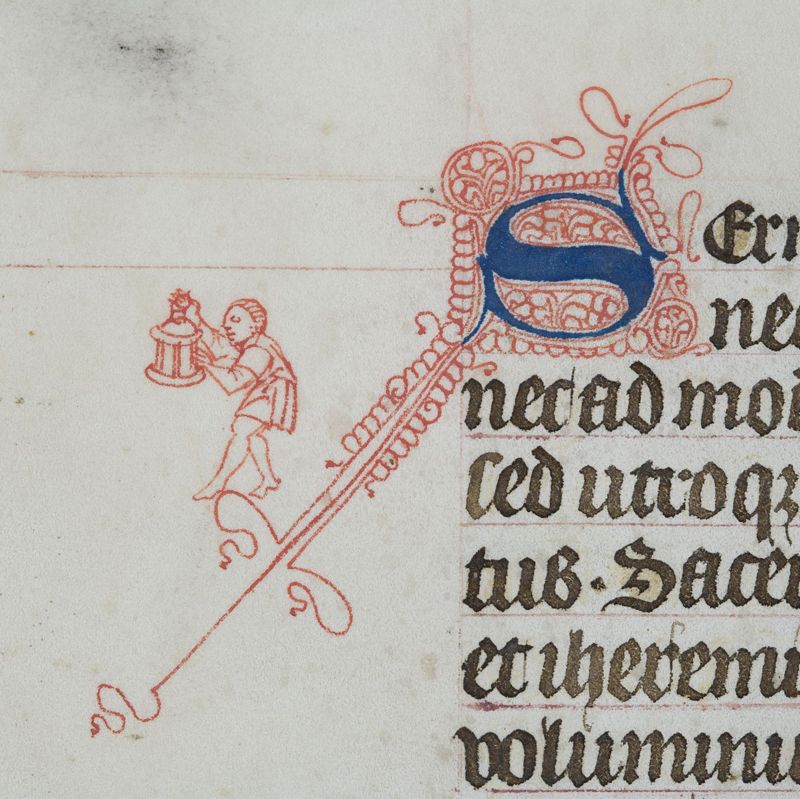 SEri
nec
nec ad mo
sed utroqꝫ
tus. Sacer
et iheremi
voluminu